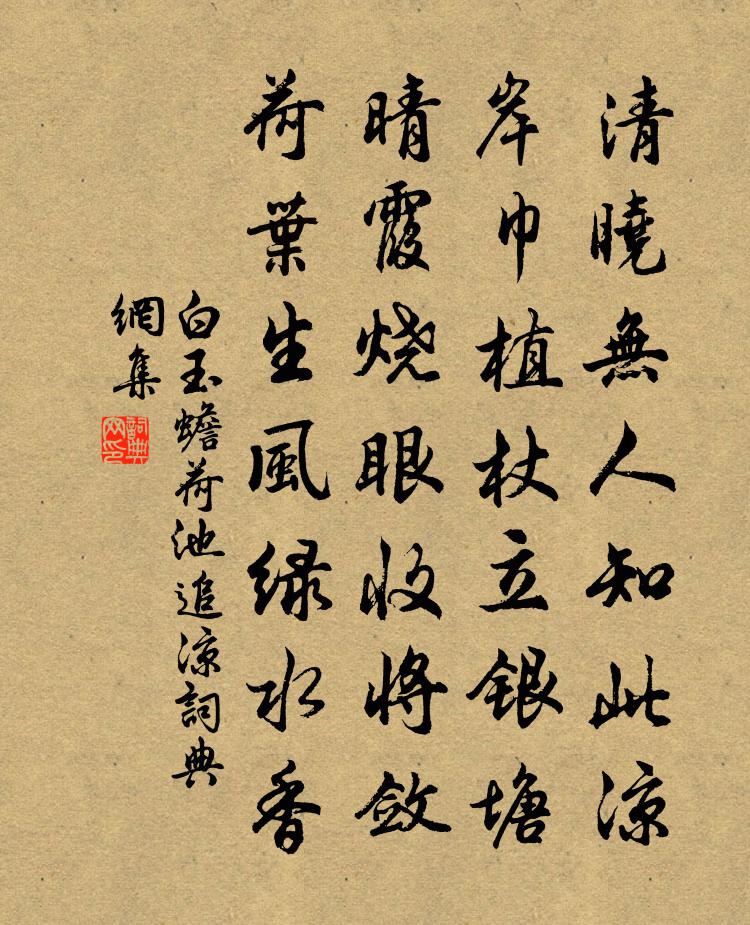 清曉無人知此涼
岸巾植杖立銀塘
晴霞燒眼收將斂
荷葉生風绿水香
白玉蟾荷池追涼詞典
網集
詞典網印